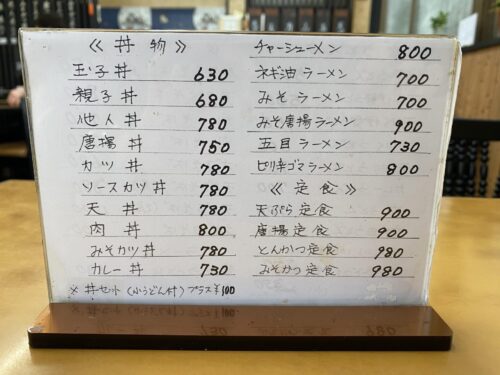 《 丼 物 》
玉子丼 630
親子丼 680
他人丼 780
唐揚丼 750
カツ丼 780
ソースカツ丼 780
天丼 780
肉丼 800
みそカツ丼 780
カレー丼 730
※ 丼セット(小うどん付)プラス¥100
チャーシューメン 800
ネギ油ラーメン 700
みそラーメン 700
みそ唐揚ラーメン 900
五目ラーメン 730
ピリ辛ゴマラーメン 800
《 定食 》
天ぷら定食 900
唐揚定食 900
とんかつ定食 980
みそかつ定食 980